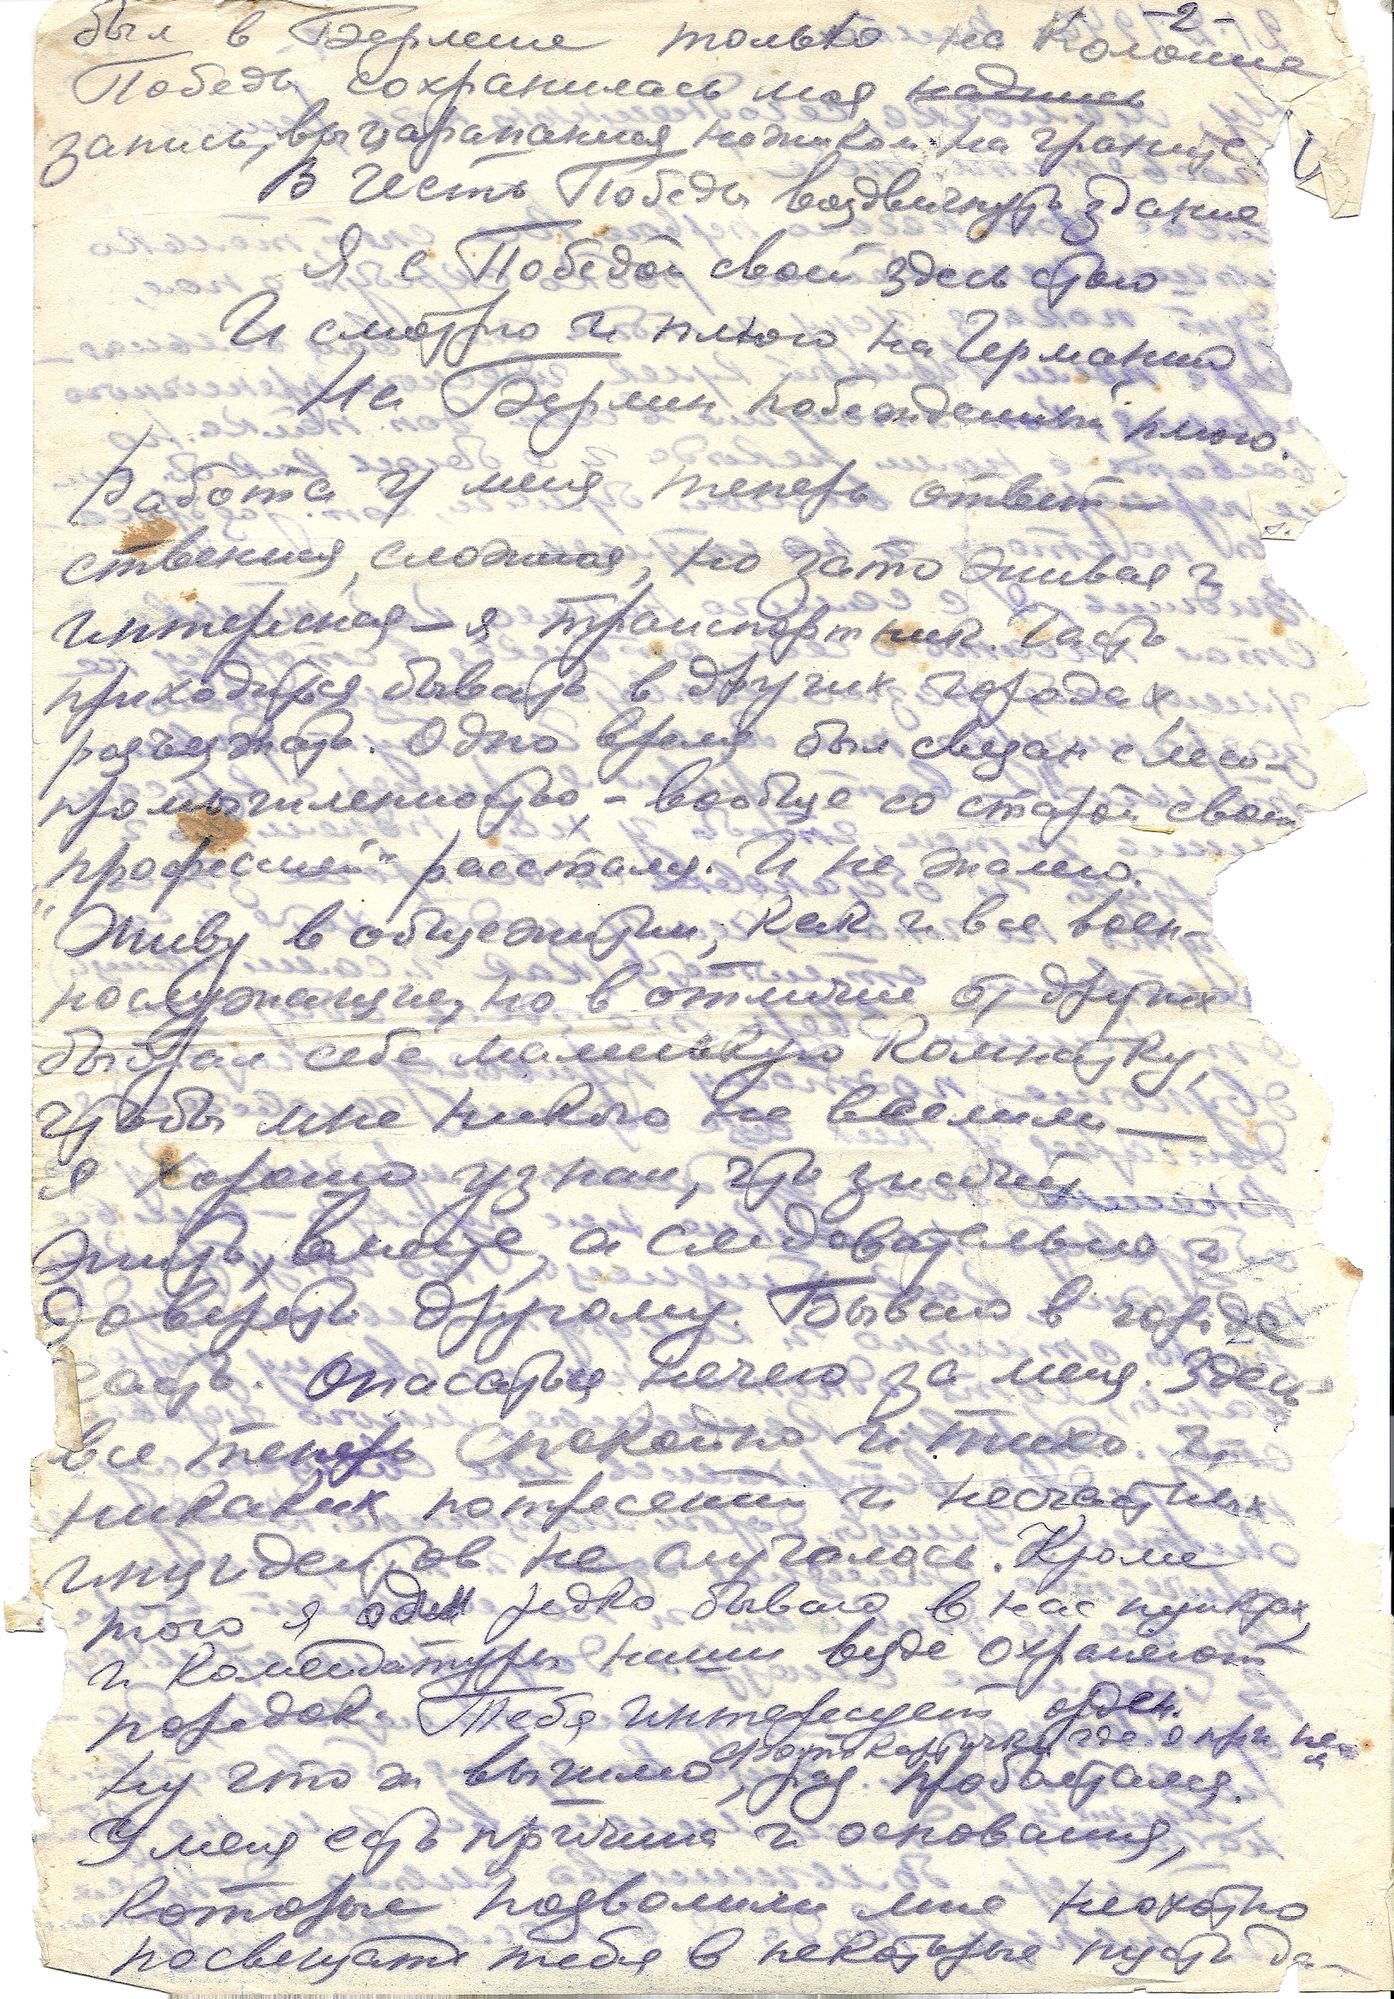 -2-
был в Берлине только на Колонне
Победы сохранилась моя надпись
запись, выцарапанная ножиком на граните
В честь Победы воздвигнуть здание
Я с Победой своей здесь стою
И смотрю и плюю на Германию
На Берлин побежденный плюю.
Работа у меня теперь ответ-
ственная, сложная, но зато живая и
интересная – я транспортник. Часто
приходится бывать в других городах
разъезжать. Одно время был связан с лесо-
промышленностью, – вообще со старой своей
"профессией" расстался. И не жалею.
Живу в общежитии, как и все воен-
нослужащие, но в отличие от других
выбрал себе маленькую комнатку,
чтобы мне никого не вселили —
я хорошо узнал, что значит
жить вместе, а следовательно и
доверять другому. Бываю в городе
часто. Опасаться нечего за меня. Здесь
все теперь спокойно и тихо и
никаких потрясений и несчастных
инцидентов не случалось. Кроме
того я один редко бываю в нас пунктах,
и комендатуры наши везде охраняют
порядок. Тебя интересует орден.
фотокарточку где я при нем
Ну что ж вышлю, раз проболтался.
У меня есть причины и основания,
которые позволили мне неохотно
посвещать тебя в некоторые пусть да-